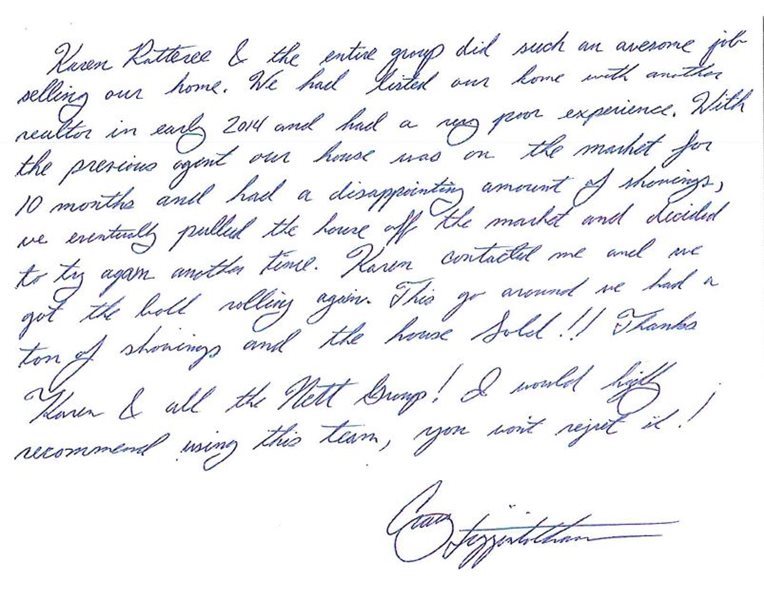 Karen Ratteree & the entire group did such an awesome job
selling our home. We had listed our home with another
realtor in early 2014 and had a very poor experience. With
the previous agent our house was on the market for
10 months and had a disappointing amount of showings,
we eventually pulled the house off the market and decided
to try again another time. Karen contacted me and we
got the ball rolling again. This go around we had a
ton of showings and the house Sold!!! Thanks
Karen & all the Nett Group! I would highly
recommend using this team, you won't regret it!
Craig